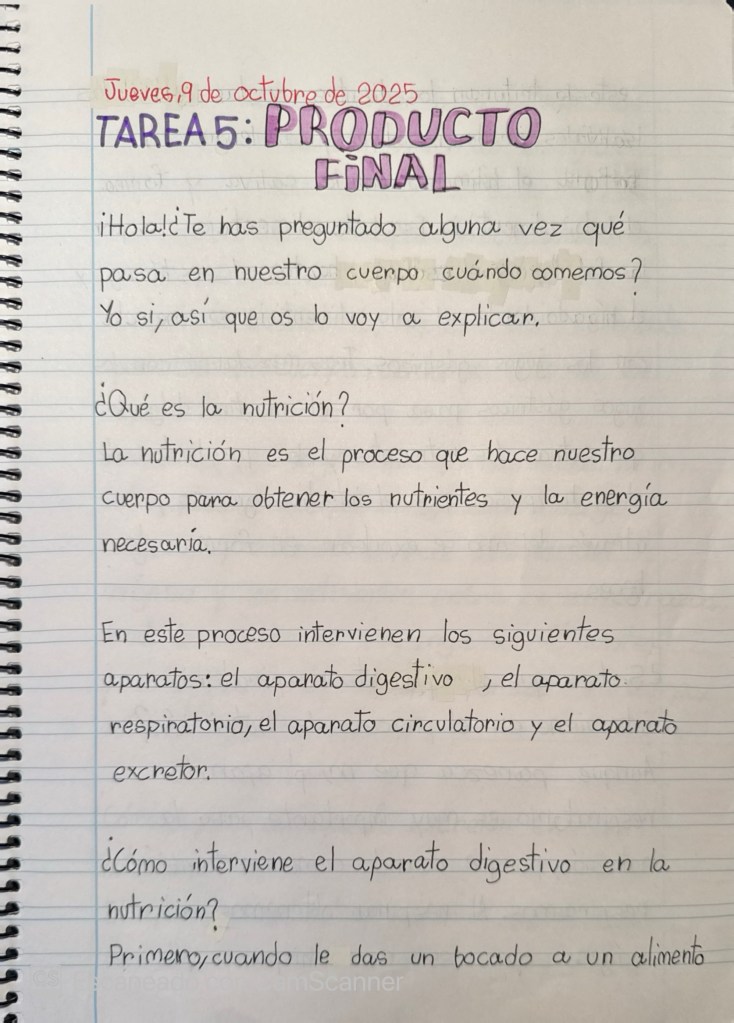 Jueves, 9 de octubre de 2025
TAREA 5: PRODUCTO
FINAL
¡Hola! ¿Te has preguntado alguna vez qué
pasa en nuestro cuerpo cuándo comemos?
Yo si, así que os lo voy a explicar.
¿Qué es la nutrición?
La nutrición es el proceso que hace nuestro
cuerpo para obtener los nutrientes y la energía
necesaría.
En este proceso intervienen los siguientes
aparatos: el aparato digestivo , el aparato
respiratorio, el aparato circulatorio y el aparato
excretor.
¿Cómo interviene el aparato digestivo en la
nutrición?
Primero, cuando le das un bocado a un alimento
CamScanner